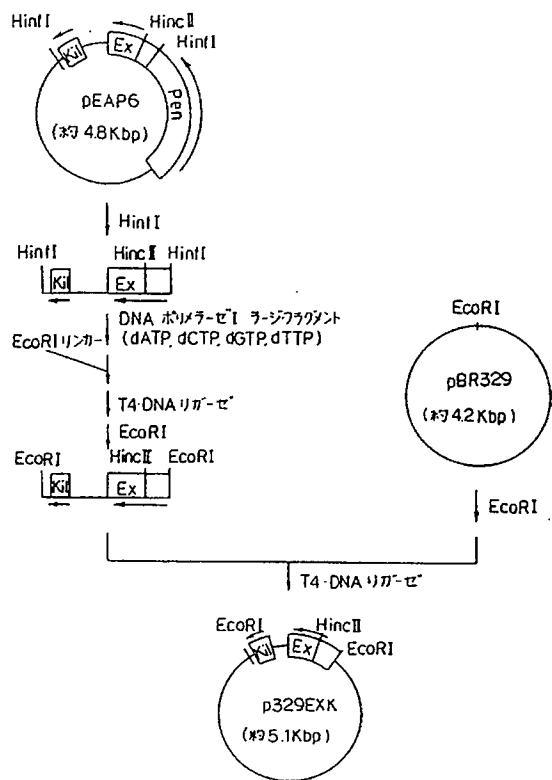 HinfI
HincⅡ
HinfI
Kil
Ex
Pen
pEAP6
(約4.8Kbp)
HinfI
HinfI
HincⅡ
HinfI
Kil
Ex
DNA ポリメラーゼⅠ ラージフラグメント
(dATP, dCTP, dGTP, dTTP)
EcoRIリンカー
T4·DNAリガーゼ
EcoRI
EcoRI
HincⅡ
EcoRI
Kil
Ex
EcoRI
pBR329
(約4.2Kbp)
EcoRI
T4·DNAリガーゼ
EcoRI
HincⅡ
EcoRI
Kil
Ex
p329EXK
(約5.1Kbp)